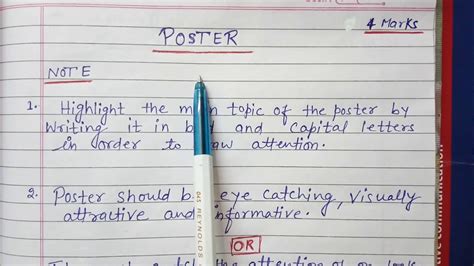 4 Marks
POSTER
NOTE
1. Highlight the main topic of the poster by
writing it in and capital letters
in order to attention.
2. Poster should be eye catching, visually
attractive and informative.
OR
the attention of
045 REYNOLDS